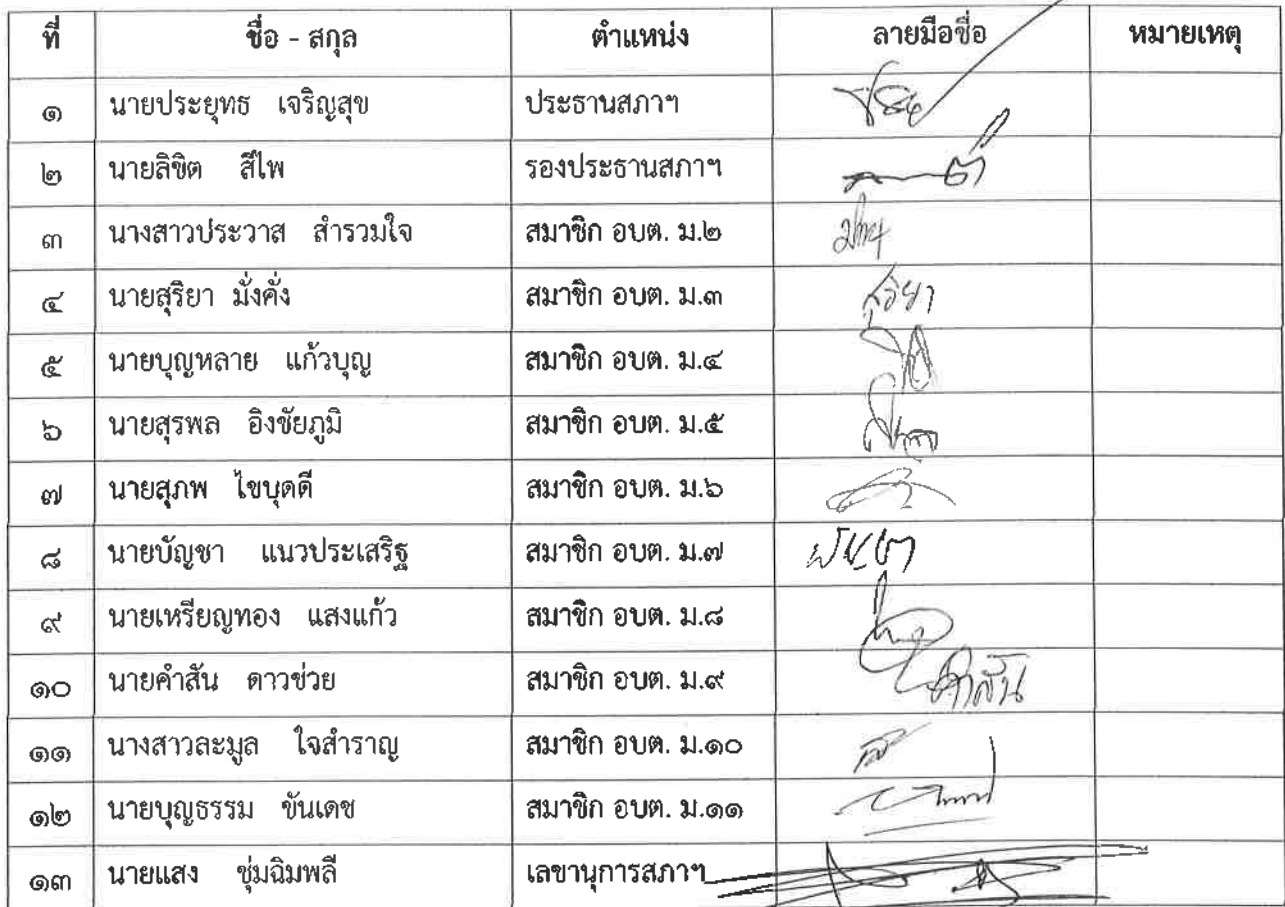 ที่ ชื่อ - สกุล ตำแหน่ง ลายมือชื่อ หมายเหตุ
๑ นายประยุทธ เจริญสุข ประธานสภาฯ
๒ นายลิขิต สีไพ รองประธานสภาฯ
๓ นางสาวประวาส สำรวมใจ สมาชิก อบต. ม.๒
๔ นายสุริยา มั่งคั่ง สมาชิก อบต. ม.๓ สุริยา
๕ นายบุญหลาย แก้วบุญ สมาชิก อบต. ม.๔
๖ นายสุรพล อิงชัยภูมิ สมาชิก อบต. ม.๕
๗ นายสุภพ ไขบุดดี สมาชิก อบต. ม.๖
๘ นายบัญชา แนวประเสริฐ สมาชิก อบต. ม.๗
๙ นายเหรียญทอง แสงแก้ว สมาชิก อบต. ม.๘
๑๐ นายคำสัน ดาวช่วย สมาชิก อบต. ม.๙ คำสัน
๑๑ นางสาวละมูล ใจสำราญ สมาชิก อบต. ม.๑๐
๑๒ นายบุญธรรม ขันเดช สมาชิก อบต. ม.๑๑
๑๓ นายแสง ชุ่มฉิมพลี เลขานุการสภาฯ